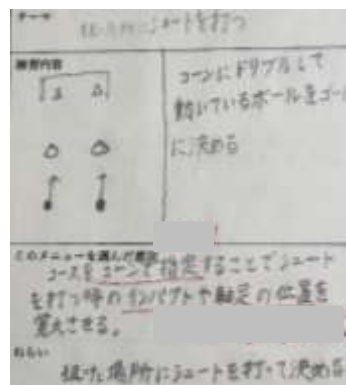 テーマ
狙った所にシュートを打つ
練習内容
コーンにドリブルして
動いているボールをゴー
に決める
このメニューを選んだ意図
コースをコーンで指定することでシュート
を打つ時のインパクトや軸足の位置を
覚えさせる。
ねらい
狙った場所にシュートを打って決める